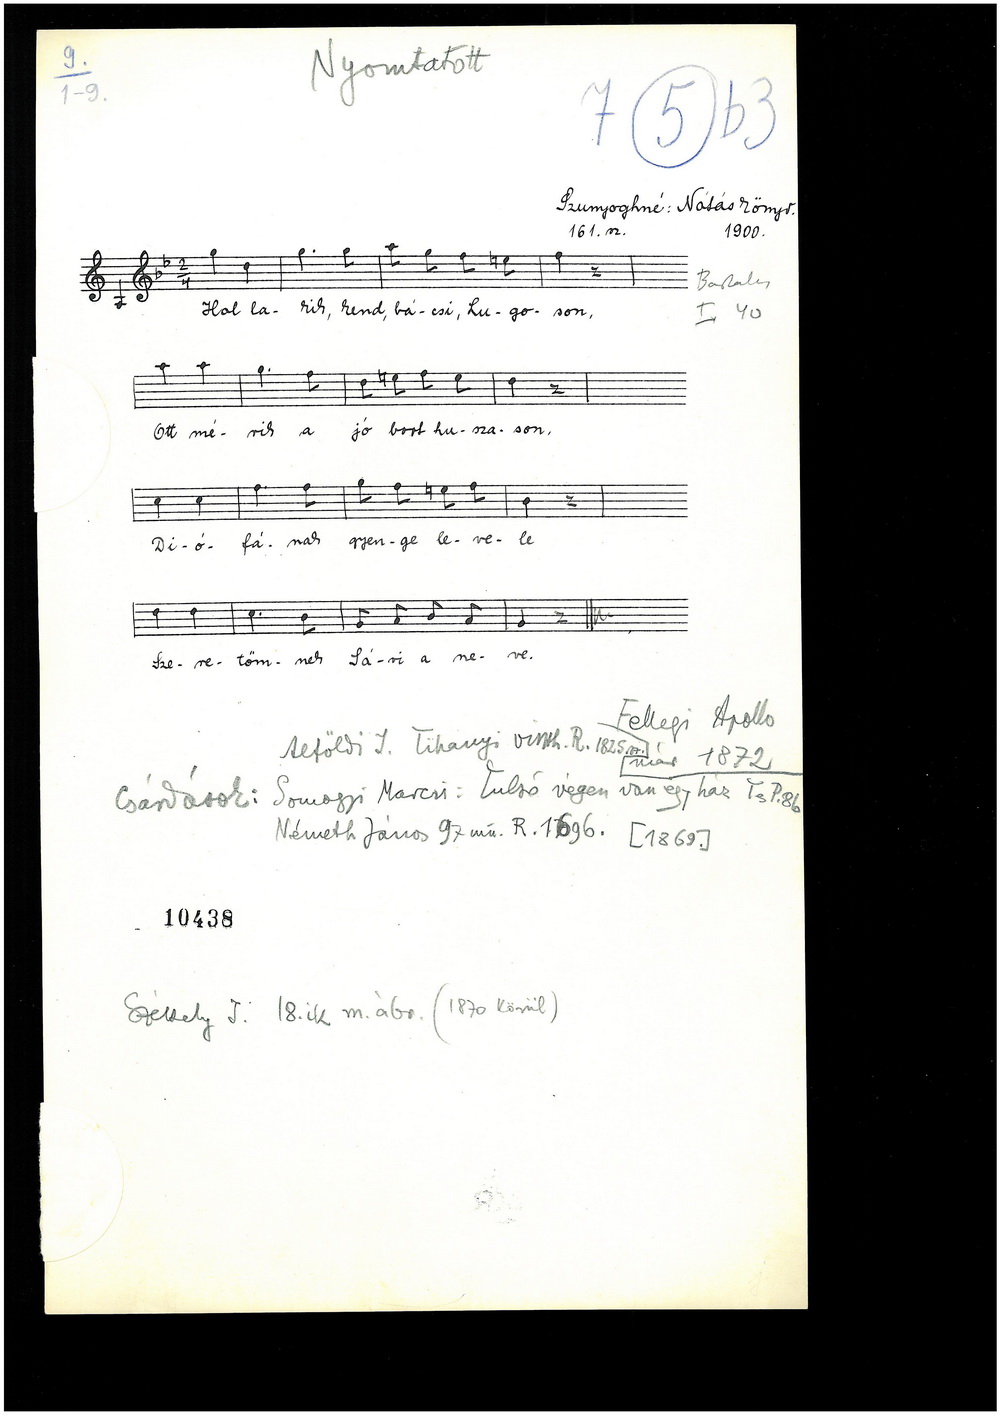 9.
1-9.
Nyomtatott
7 5 b3
Szunyoghné: Nótáskönyv.
161. sz. 1900.
Bartalus
I 40
2
4
Hol la- kik, kend, bá- csi, hu- go- son,
Ott mé- rik a jó bort hu- sza- son,
Di- ó- fá- nak gyen- ge le- ve- le
Sze- re- töm- nek Sá- ri a ne- ve.
Fellegi Apollo
Alföldi I. Tihanyi R. 1825 már 1872
Csárdások: Somogyi Marcsi: Tulsó végen van egy ház P. 86
Németh János 97 mű. R. 1696. [1869.]
10438
Székely I: 18.ik m. ábr. (1870 körül)